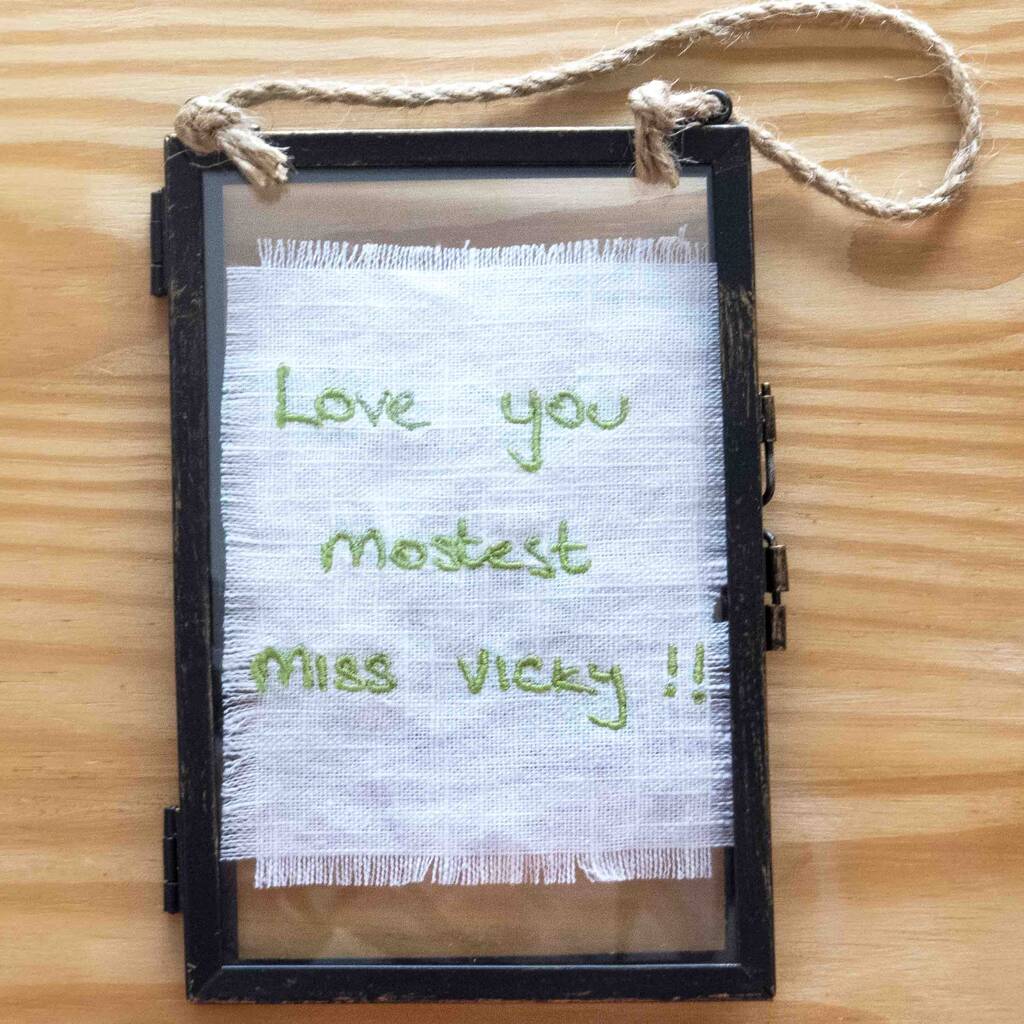 Love you
mostest
miss vicky !!